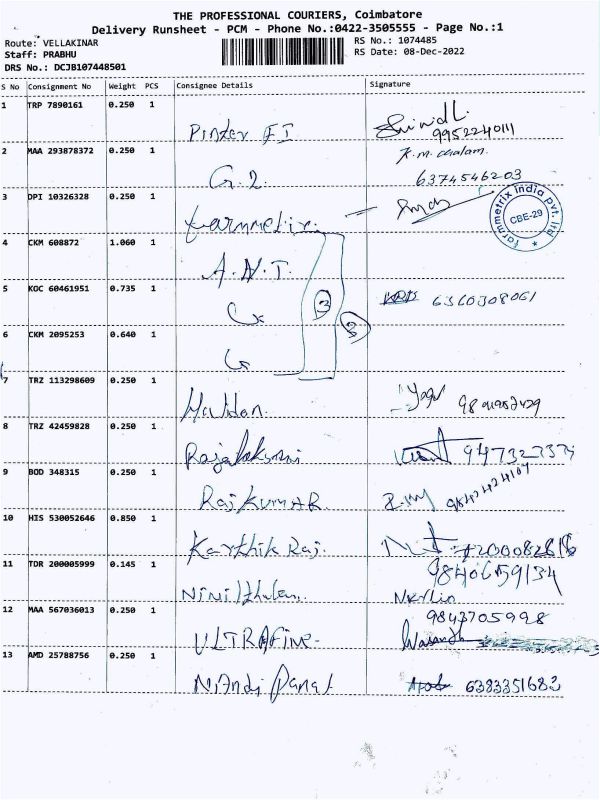 THE PROFESSIONAL COURIERS, Coimbatore
Delivery Runsheet - PCM - Phone No.:0422-3505555 - Page No.:1
Route: VELLAKINAR
RS No.: 1074485
Staff: PRABHU
RS Date: 08-Dec-2022
DRS No.: DCJB107448501
S No Consignment No Weight PCS Consignee Details Signature
1 TRP 7890161 0.250 1
9952240111
2 MAA 293878372 0.250 1 G.2. K.m. chalam.
6374546203
3 DPI 10326328 0.250 1
farmmetrix india pvt. ltd
CBE-29
4 CKM 608872 1.060 1 A.N.T.
5 KOC 60461951 0.735 1 6360308061
3
3
6 CKM 2095253 0.640 1
7 TRZ 113298609 0.250 1
8 TRZ 42459828 0.250 1
9 BOD 348315 0.250 1 RajkumAR
9842424107
10 HIS 530052646 0.850 1 Karthik Raj.
11 TDR 200005999 0.145 1 9840659134
12 MAA 567036013 0.250 1 ULTRAFine 9843705998
13 AMD 25788756 0.250 1 6383351683